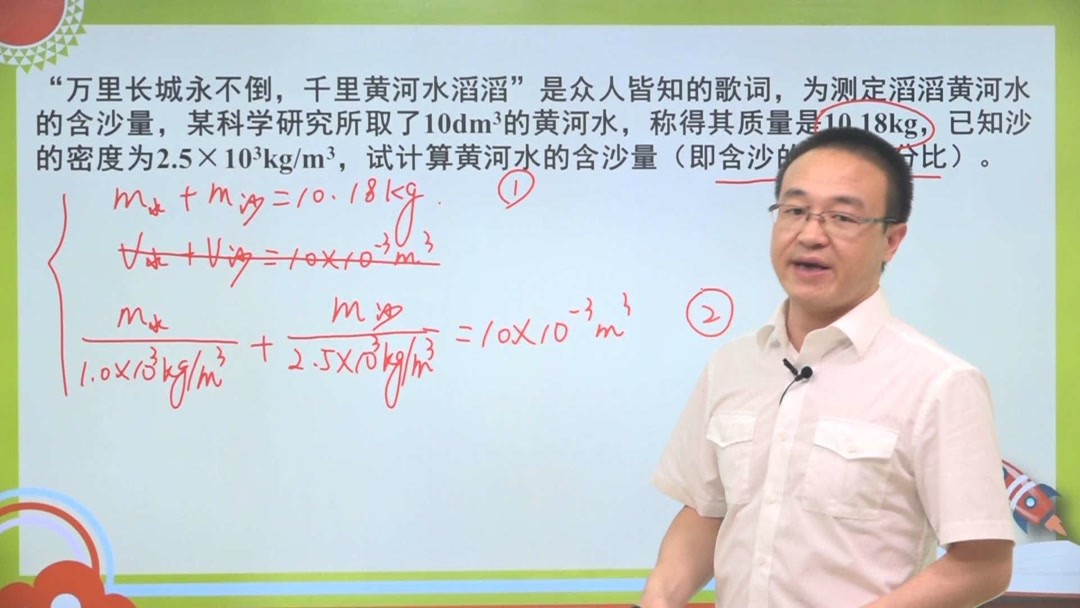 “万里长城永不倒，千里黄河水滔滔”是众人皆知的歌词，为测定滔滔黄河水
的含沙量，某科学研究所取了10dm³的黄河水，称得其质量是10.18kg，已知沙
的密度为2.5×10³kg/m³，试计算黄河水的含沙量（即含沙的 分比）。
m水 + m沙 = 10.18kg. ①
V水 + V沙 = 10×10⁻³m³
m水/1.0×10³kg/m³ + m沙/2.5×10³kg/m³ = 10×10⁻³m³ ②